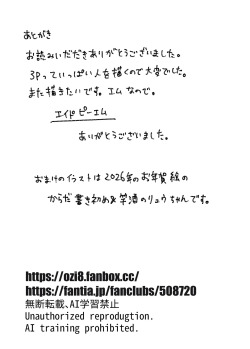 あとがき
お読みいただきありがとうございました。
3Pっていっぱい人を描くので大変でした。
また描きたいです。エム なので。
エイド ピーエム
ありがとうございました。
おまけのイラストは2026年のお年賀絵の
からだ書き初め&筆漬のリュウちゃんです。
https://ozi8.fanbox.cc/
https://fantia.jp/fanclubs/508720
無断転載、AI学習禁止
Unauthorized reprodugtion.
AI training prohibited.